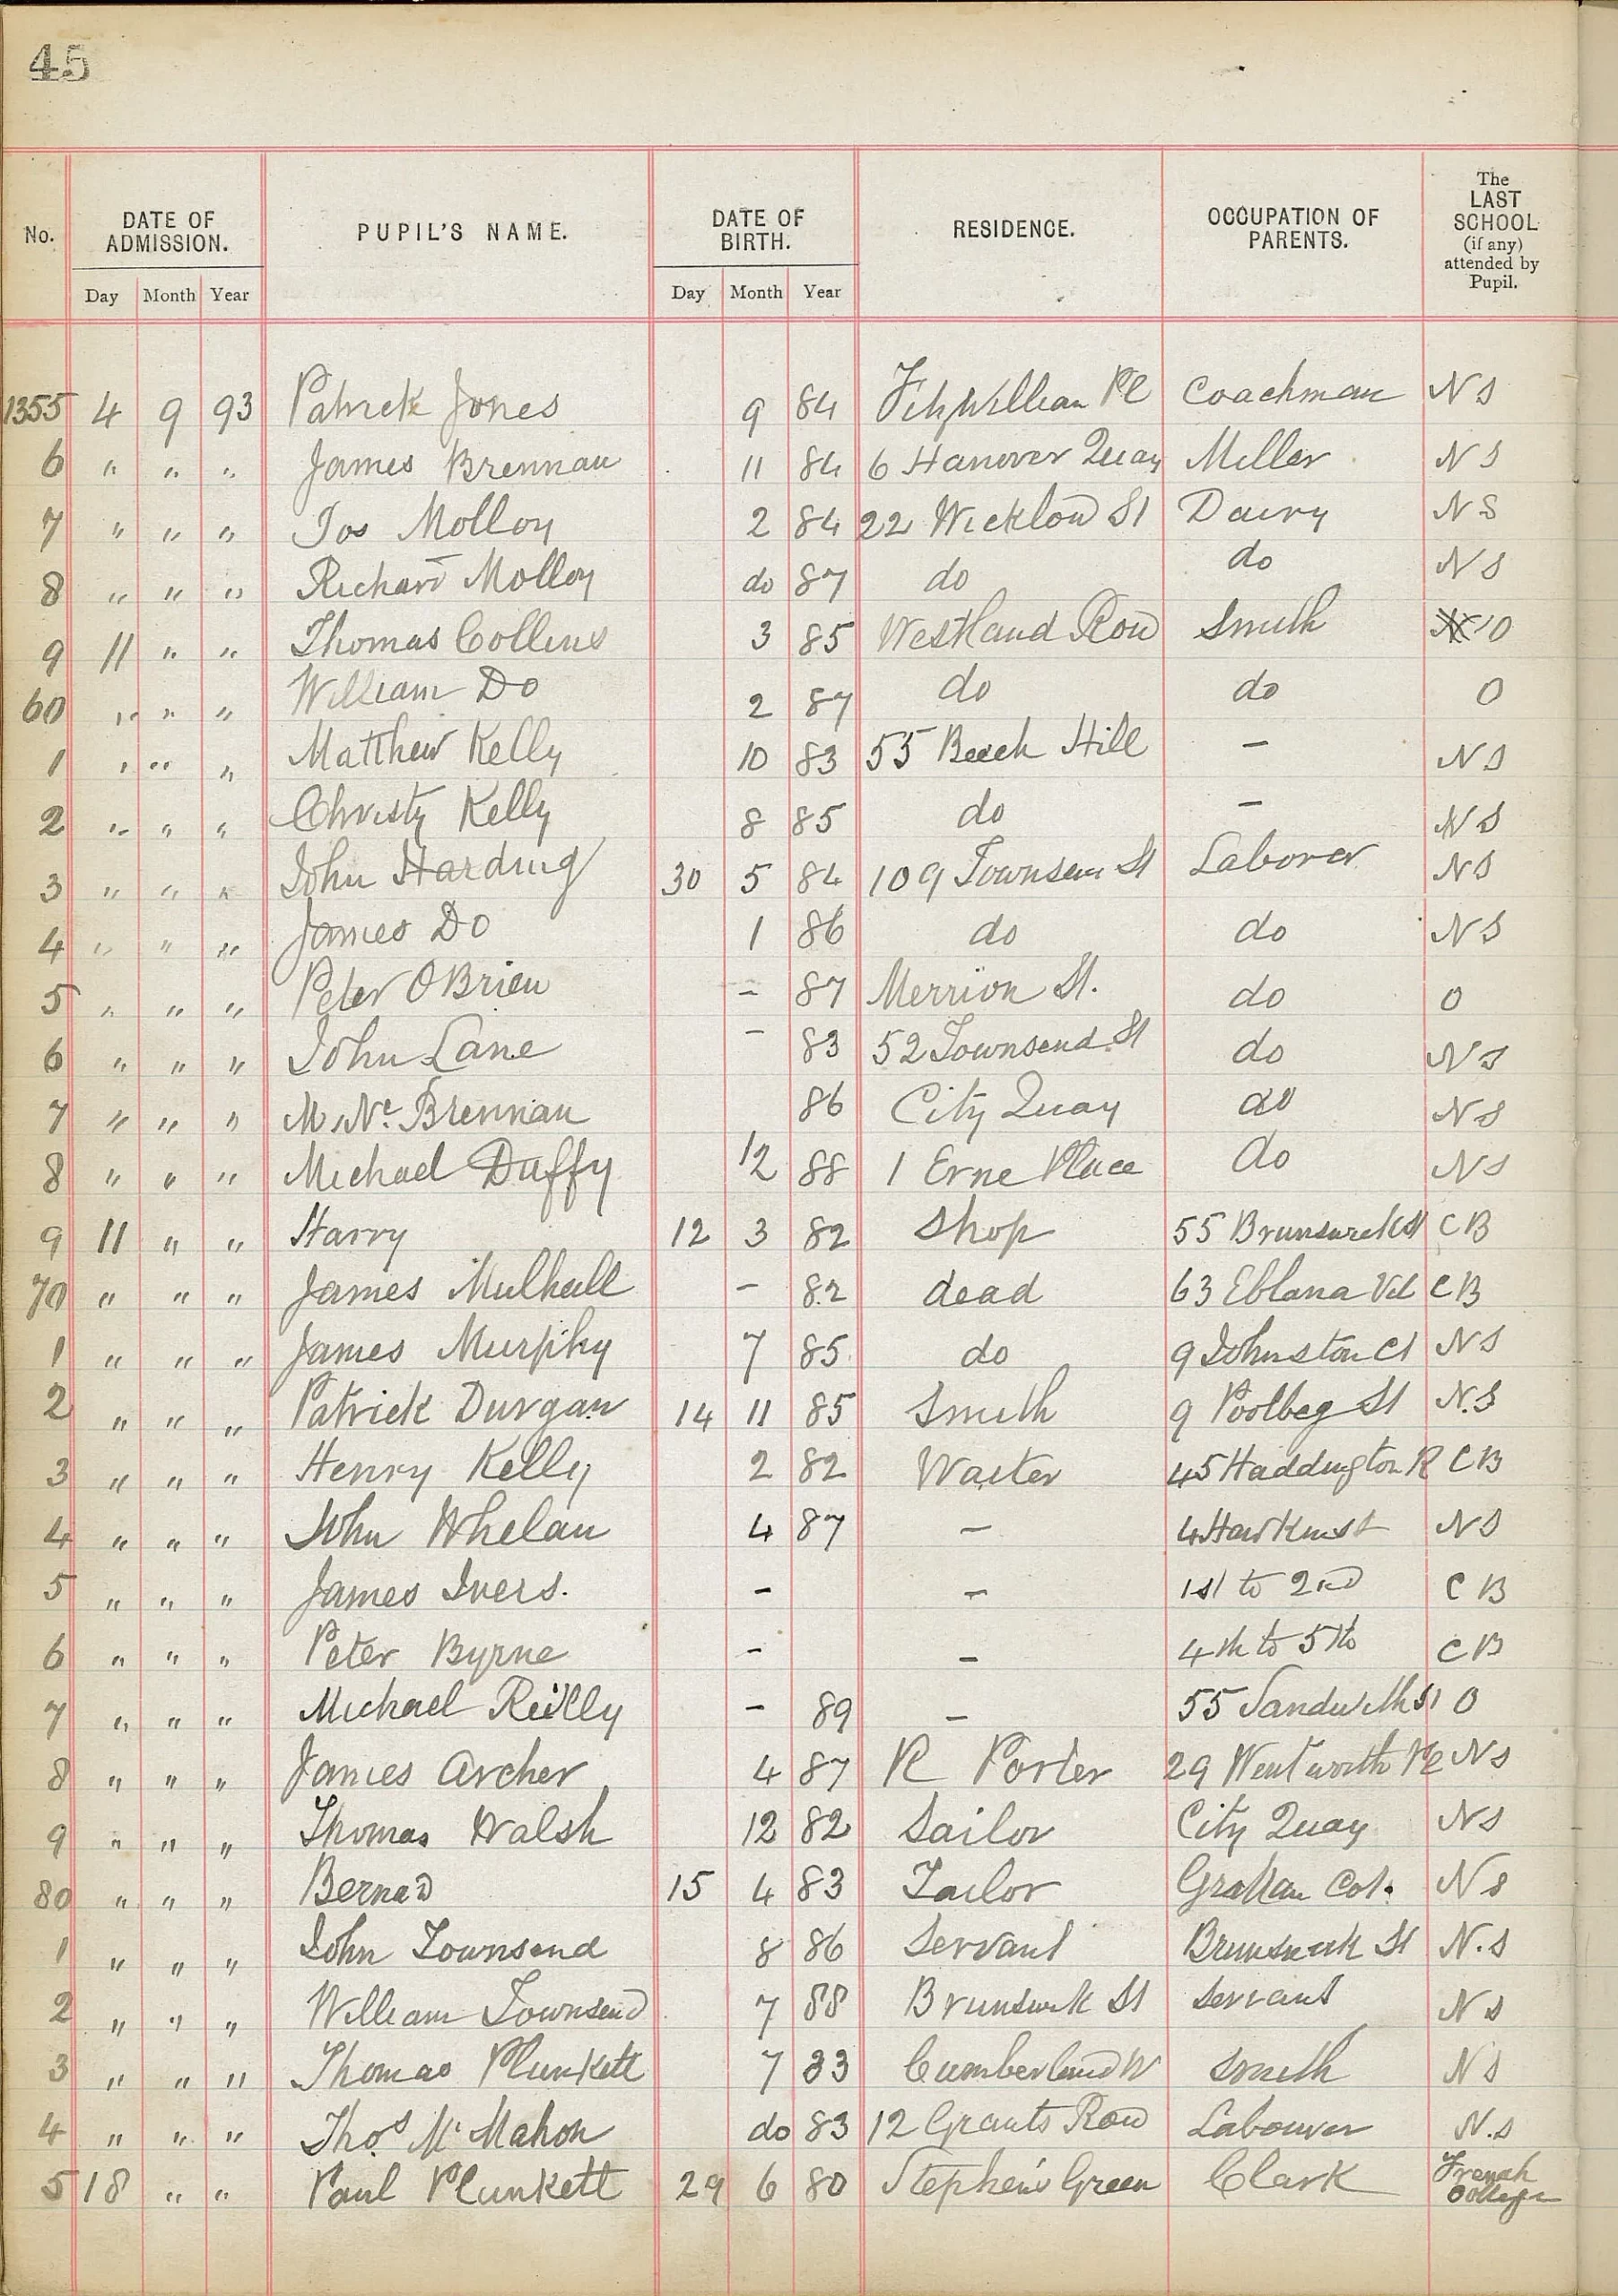 45
No. DATE OF ADMISSION. PUPIL'S NAME. DATE OF BIRTH. RESIDENCE. OCCUPATION OF PARENTS. The LAST SCHOOL (if any) attended by Pupil.
Day Month Year Day Month Year
1355 4 9 93 Patrick Jones 9 84 Fitzwilliam Pl Coachman N S
6 " " " James Brennan 11 84 6 Hanover Quay Miller N S
7 " " " Jos Molloy 2 84 22 Wicklow St Dairy N S
8 " " " Richard Molloy do 87 do do N S
9 11 " " Thomas Collins 3 85 Westland Row Smith O
60 " " " William Do 2 87 do do O
1 " " " Matthew Kelly 10 83 55 Beech Hill – N S
2 " " " Christy Kelly 8 85 do – N S
3 " " " John Harding 30 5 84 109 Townsen St Laborer N S
4 " " " James Do 1 86 do do N S
5 " " " Peter O Brien – 87 Merrion St. do O
6 " " " John Lane – 83 52 Townsend St do N S
7 " " " Brennan 86 City Quay do N S
8 " " " Michael Duffy 12 88 1 Erne Place do N S
9 11 " " Harry 12 3 82 Shop 55 Brunswick St C B
70 " " " James Mulhall – 82 dead 63 Eblana Vil C B
1 " " " James Murphy 7 85 do 9 Johnston Ct N S
2 " " " Patrick Durgan 14 11 85 Smith 9 Poolbeg St N.S
3 " " " Henry Kelly 2 82 Waiter 45 Haddington R C B
4 " " " John Whelan 4 87 – 4 Hawkins St N S
5 " " " James Ivers. – – 1st to 2nd C B
6 " " " Peter Byrne – – 4th to 5th C B
7 " " " Michael Reilly – 89 – 55 Sandwith St O
8 " " " James Archer 4 87 R Porter 29 Wentworth Pl N S
9 " " " Thomas Walsh 12 82 Sailor City Quay N S
80 " " " Bernad 15 4 83 Tailor Grattan Cot. N S
1 " " " John Townsend 8 86 Servant Brunswick St N.S
2 " " " William Townsend 7 88 Brunswick St Servant N S
3 " " " Thomas Plunkett 7 83 Cumberland Smith N S
4 " " " Thos McMahon do 83 12 Grants Row Labourer N.S
5 18 " " Paul Plunkett 29 6 80 Stephen's Green Clark French College